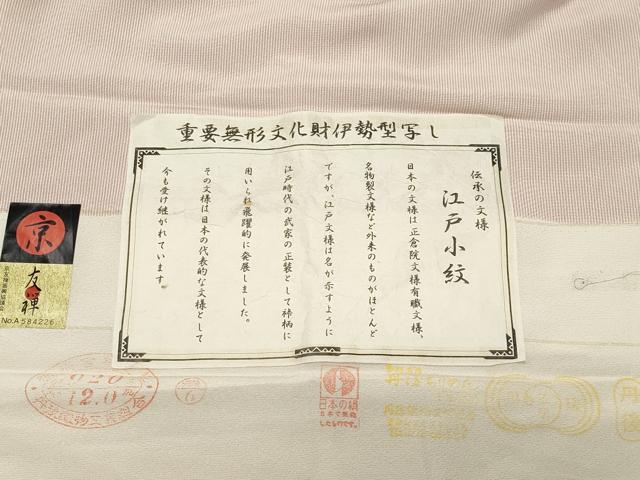 重要無形文化財伊勢型写し
伝承の文様
江戸小紋
日本の文様は正倉院文様有職文様、
名物裂文様など外来のものがほとんど
ですが、江戸文様は名が示すように
江戸時代の武家の正装として裃柄に
用いられ飛躍的に発展しました。
その文様は日本の代表的な文様として
今も受け継がれています。
京
友禅
京友禅協同組合
No.A 584226
020
12.0
日本の絹
日本で製織
したものです。
丹後